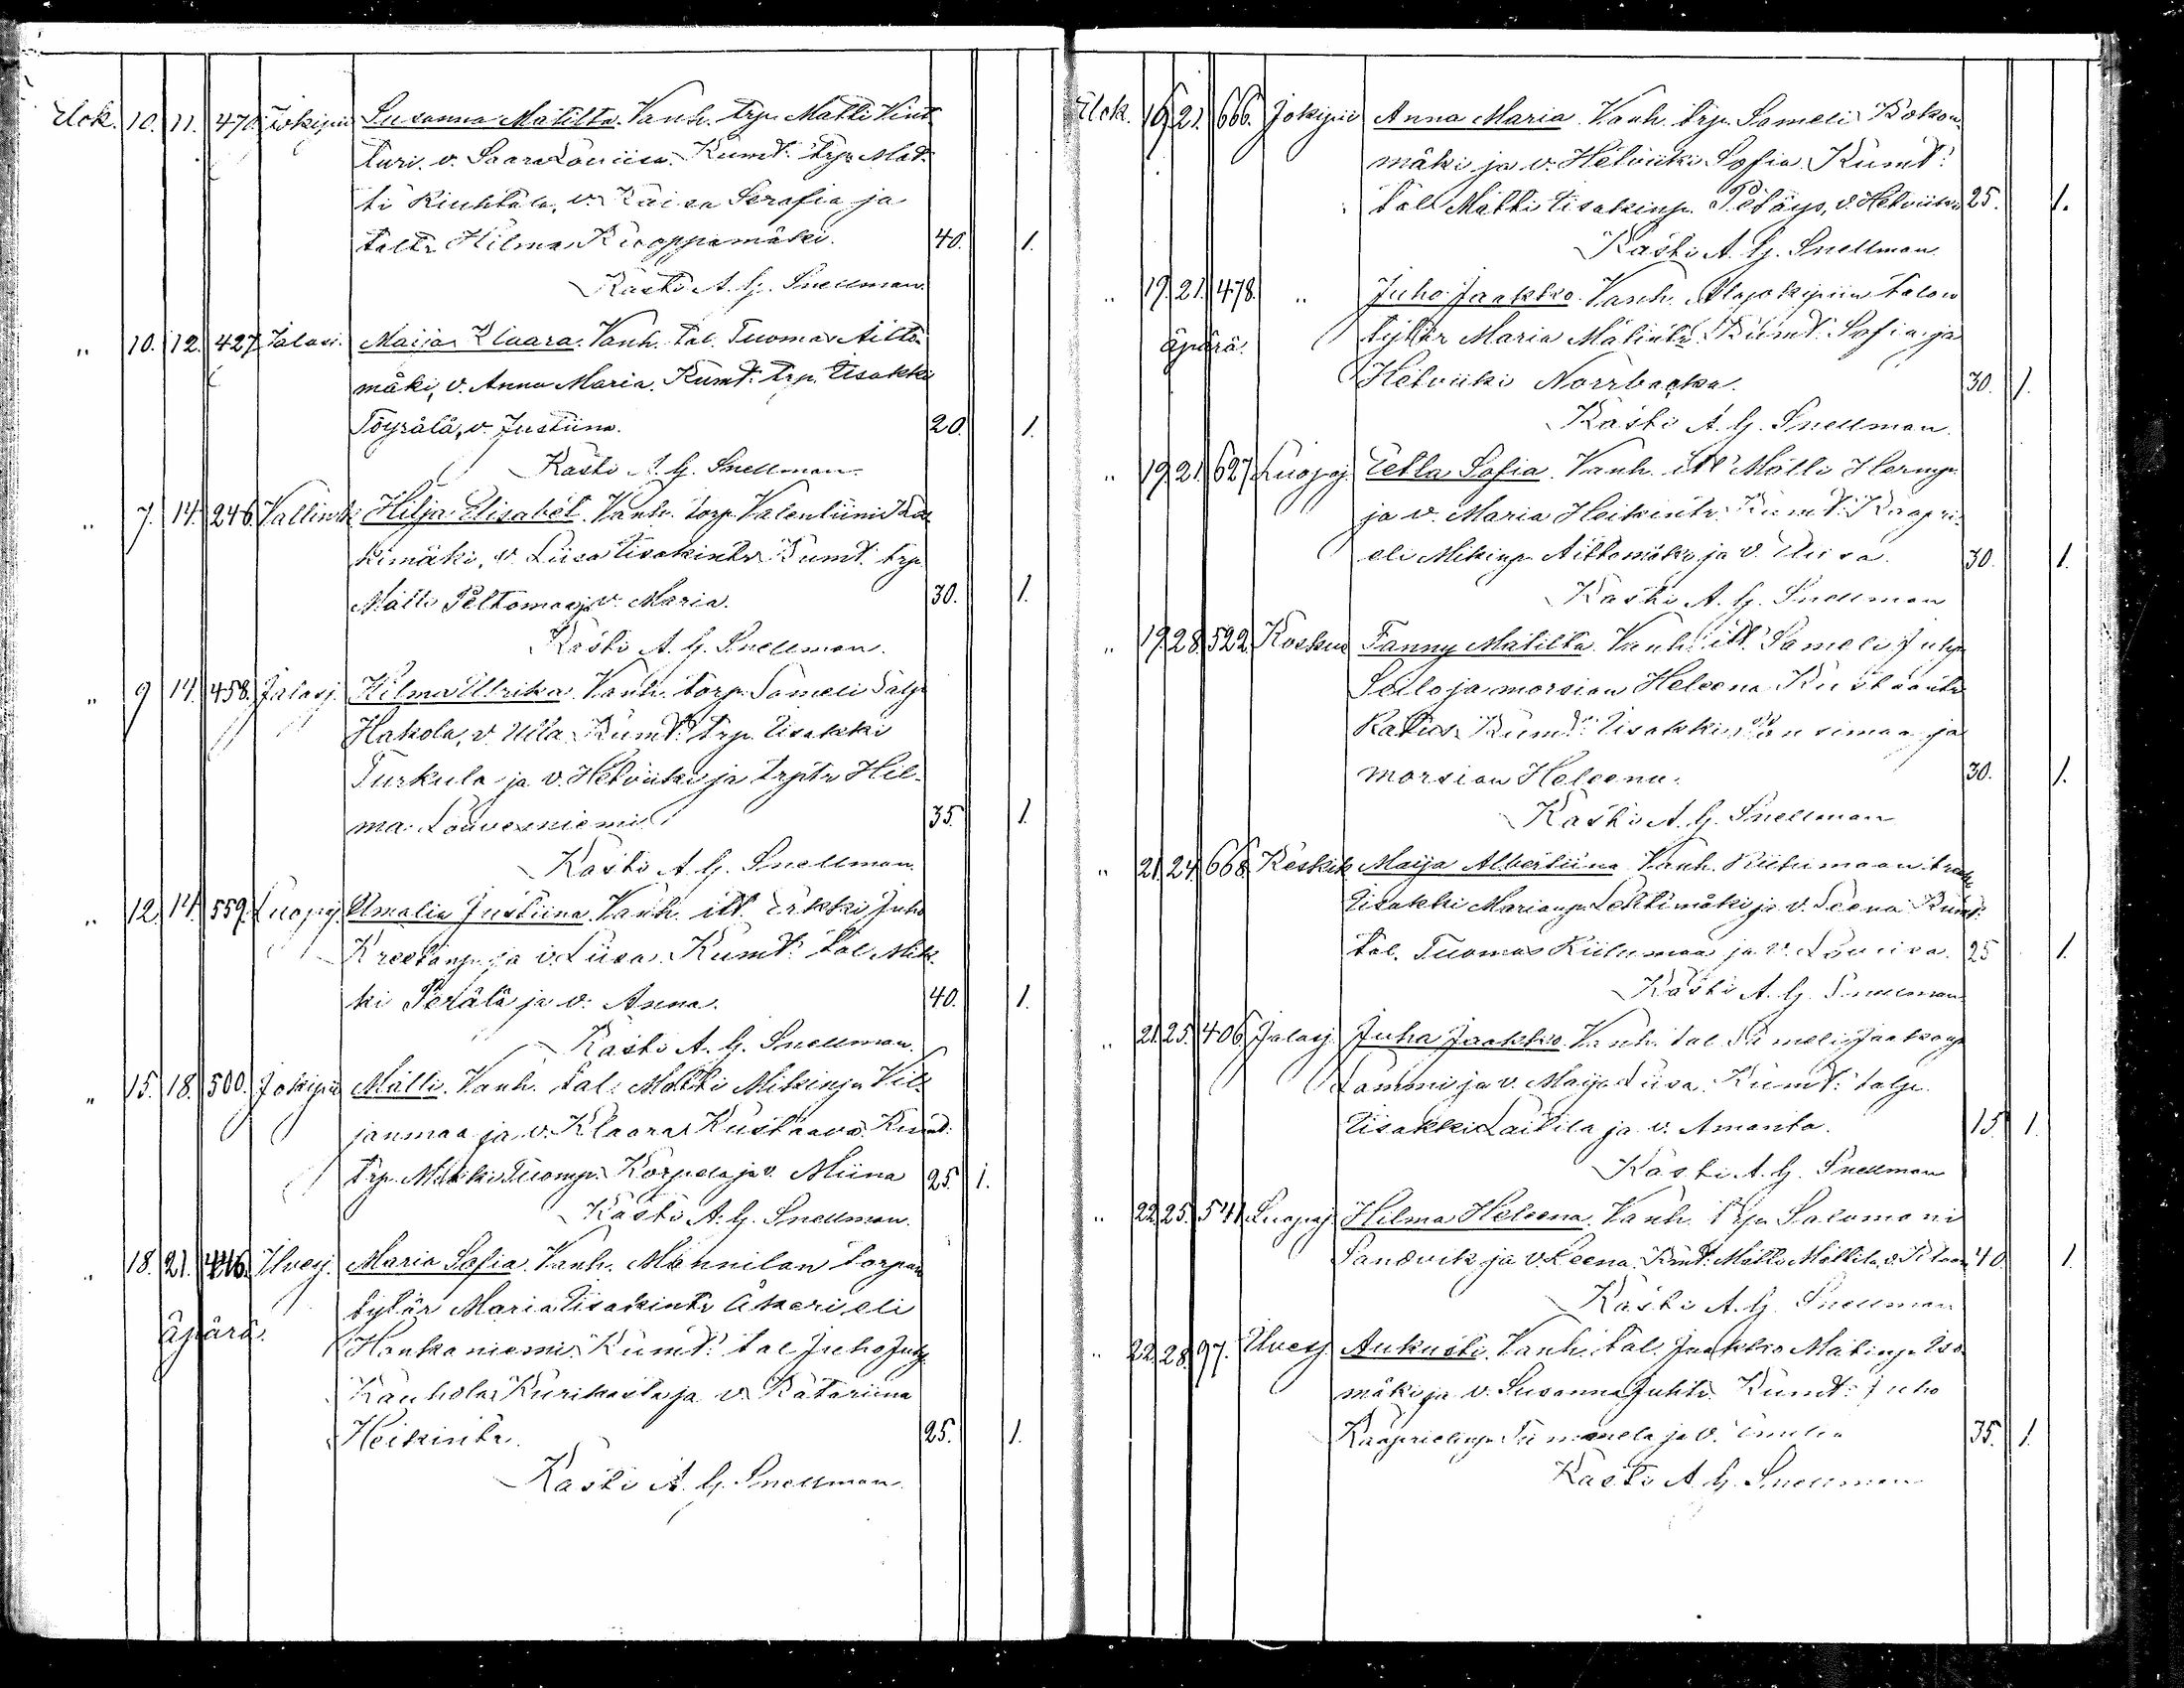 Elok. 10. 11. 470. Jokipii Susanna Matilta. Vanh. trp. Matti Kint-
turi. v. Saara Loviisa. Kumt: trp. Mat-
ti Riuhtala, v. Kaisa Serafia ja
taltr Hilma Kuoppamäki. 40. 1.
Kasti A. G. Snellman.
" 10. 12. 427. Jalasj. Maija Klaara. Vanh. tal. Tuomas Aitto-
mäki, v. Anna Maria. Kumt: trp. Iisakki
Töyrälä, v. Justiina. 20. 1.
Kasti A. G. Snellman.
" 7. 14. 246. Hilja Elisabet. Vanh. torp. Valentiini
kimäki, v. Liisa Iisakintr. Kumt: trp.
Matti Peltomaa ja v. Maria. 30. 1.
Kasti A. G. Snellman.
" 9 14. 458. Jalasj. Hilma Ulrika. Vanh. torp. Sameli Salp.
Hakola, v. Ulla. Kumt: trp. Iisakki
Turkula ja v. Hetviiki ja trptr Hil-
ma Louvesniemi. 35. 1.
Kasti A. G. Snellman.
" 12. 14. 559. Luopaj. Amalia Justiina. Vanh. itl. Erkki Juho
Kreetanp. ja v. Liisa. Kumt: tal. Mik-
ki Perälä ja v. Anna. 40. 1.
Kasti A. G. Snellman.
" 15. 18. 500. Jokipii Matti. Vanh. tal. Matti Mikinp. Vil-
janmaa ja v. Klaara Kustaava. Kumt:
trp. Mikki Tuomp. Korpela ja v. Miina 25. 1.
Kasti A. G. Snellman.
" 18. 21. 446. Ilvesj. Maria Sofia. Vanh. Mannilan torpan
äpärä. tytär Maria Iisakintr Åkeri eli
Hankaniemi. Kumt: tal. Juho Juhp.
Kauhola Kurikasta ja v. Katariina
Heikintr. 25. 1.
Kasti A. G. Snellman.
Elok. 16. 21. 666. Jokipii Anna Maria. Vanh. trp. Sameli Kokon-
mäki ja v. Hetviiki Sofia. Kumt:
tal. Matti Iisakinp. Petäys, v. Hetviiki 25. 1.
Kasti A. G. Snellman.
" 19. 21. 478. " Juho Jaakko. Vanh. Alajokipiin talon
äpärä. tytär Maria Matintr. Kumt: Sofia ja
Hetviiki Norrbacka. 30. 1.
Kasti A. G. Snellman.
" 19. 21. 627. Luopaj. Eetla Sofia. Vanh. itl. Matti Hermp.
ja v. Maria Heikintr. Kumt: Kaapri-
eli Mikinp. Aittomäki ja v. Liisa. 30. 1.
Kasti A. G. Snellman
" 19. 28. 522. Koskue Fanny Matilta. Vanh. itl. Sameli Juhp.
Seilo ja morsian Heleena Kustaantr
Ratus. Kumt: Iisakki simaa ja
morsian Heleena. 30. 1.
Kasti A. G. Snellman
" 21. 24. 668. Keskik. Maija Albertiina. Vanh. Kiilumaan
Iisakki Marianp. Lehtimäki ja v. Leena. Kumt:
tal. Tuomas Kiilumaa ja v. Loviisa. 25 1.
Kasti A. G. Snellman
" 21. 25. 406. Jalasj. Juha Jaakko. Vanh. tal. Sameli Jaakonp.
Lammi ja v. Maija Liisa. Kumt: talp.
Iisakki Laitila ja v. Amanta. 15. 1.
Kasti A. G. Snellman
" 22. 25. 541. Luopaj. Hilma Heleena. Vanh. trp. Salomoni
Sandvik ja v. Leena. Kmt: Matti Mattila, v. 40. 1.
Kasti A. G. Snellman
" 22. 28. 97. Ilvesj. Aukusti. Vanh. tal. Jaakko Matinp. Iso-
mäki ja v. Susanna Juhtr. Kumt: Juho
Kaaprielinp. ja v. 35. 1.
Kasti A. G. Snellman